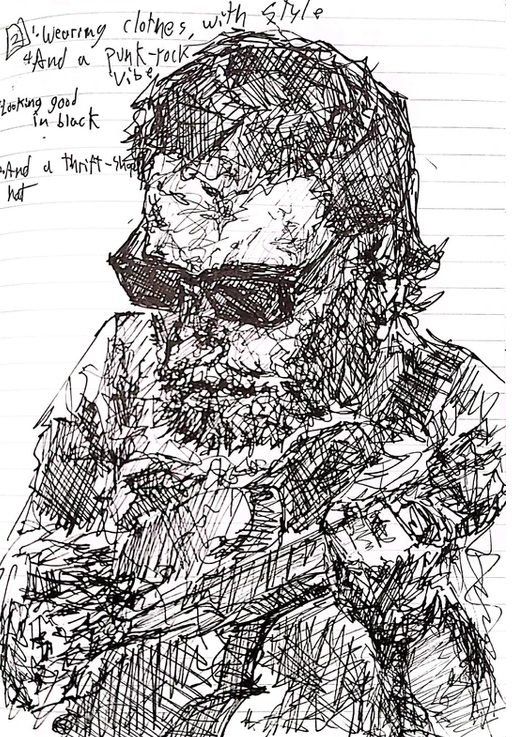 [2] "Wearing clothes, with style
"And a punk-rock
Vibe
Looking good
in black
And a thrift-shop
hat